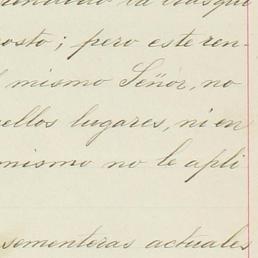 osto; pero este ren-
mismo Señor, no
ellos lugares, ni en
nismo no le apli
sementeras actuales